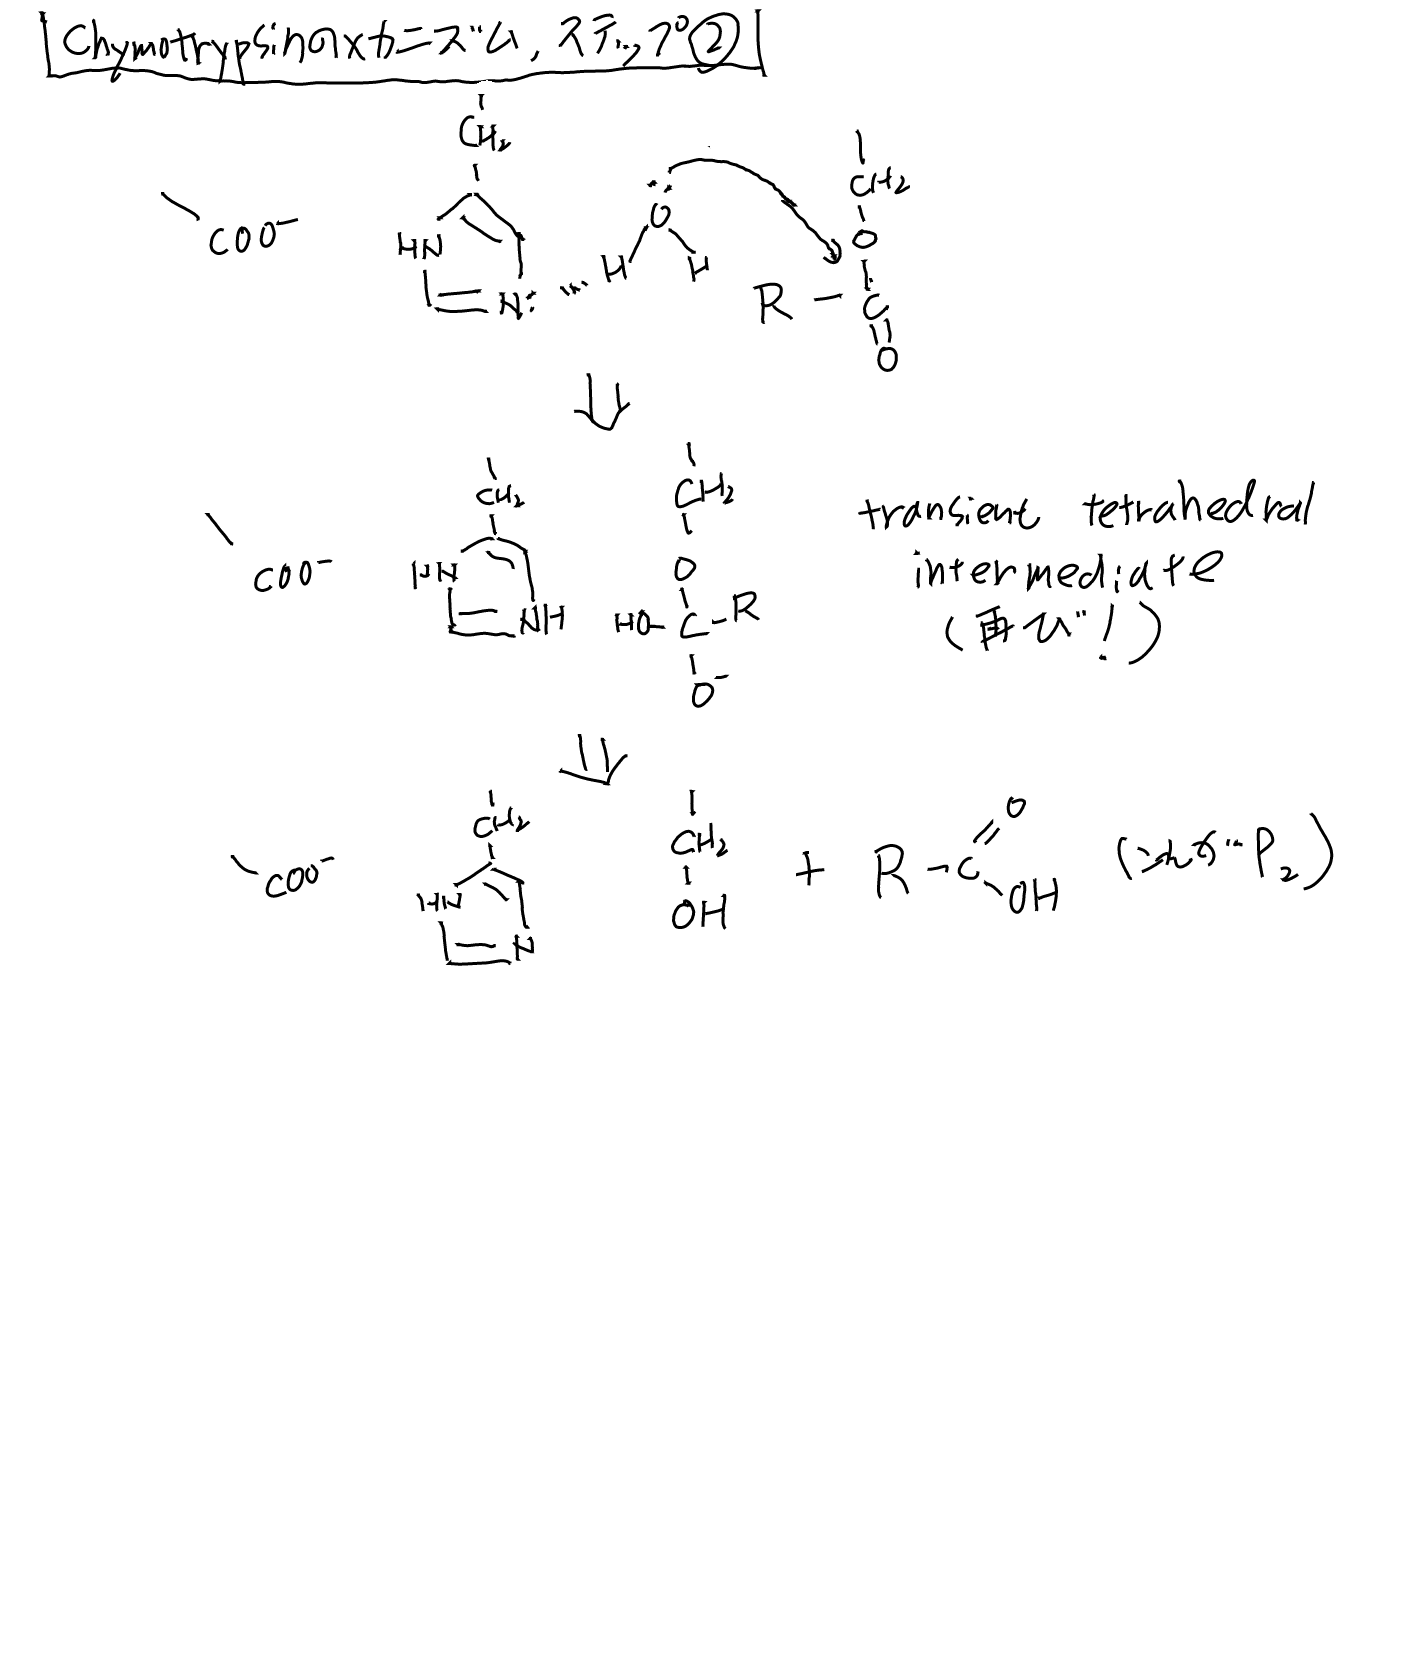 Chymotrypsinのメカニズム, ステップ②
CH₂
COO⁻
HN
N:
H
O
H
CH₂
O
R - C
O
CH₂
COO⁻
HN
NH
CH₂
O
HO-C-R
O⁻
transient tetrahedral
intermediate
(再び!)
CH₂
COO⁻
HN
N
CH₂
OH
+
R-C
O
OH
(これがP₂)